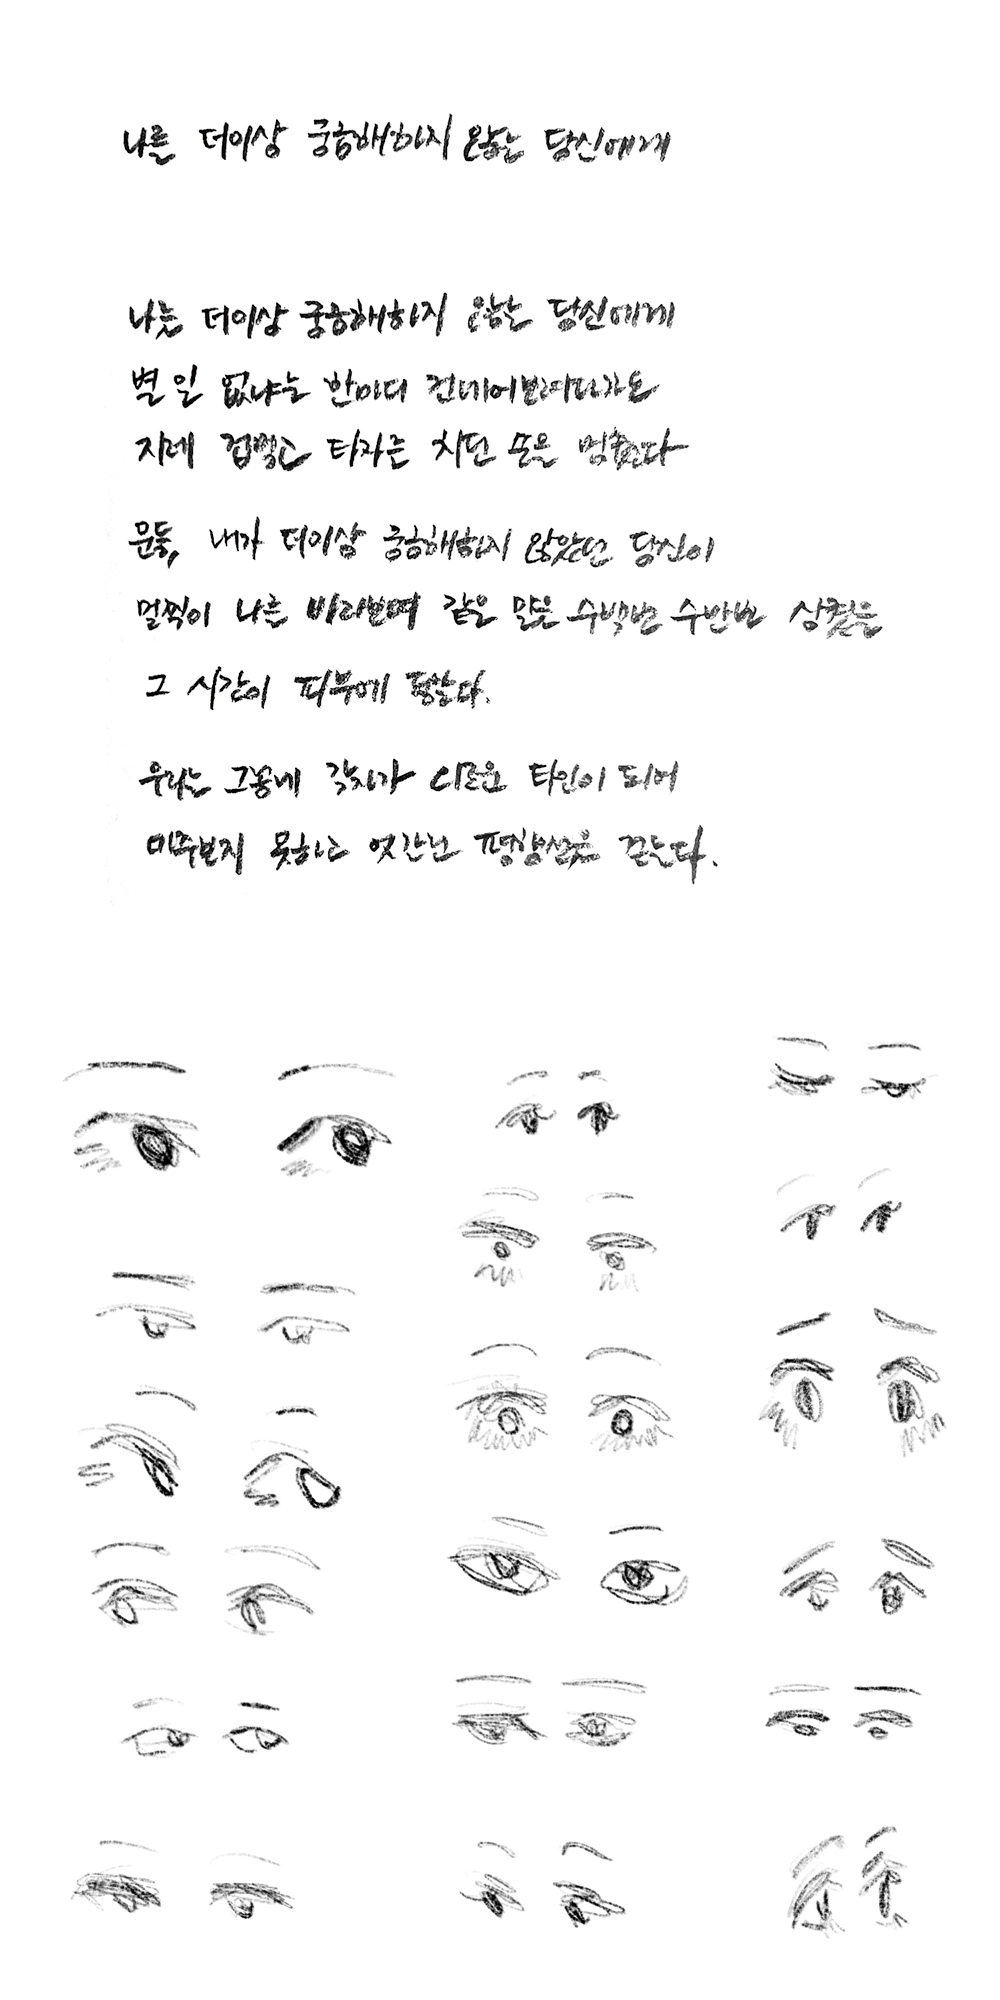 나를 더이상 궁금해하지 않는 당신에게
나를 더이상 궁금해하지 않는 당신에게
별 일 없냐는 한마디 건네어보려다가도
지레 겁먹고 타자를 치던 손을 멈춘다
문득, 내가 더이상 궁금해하지 않았던 당신이
멀찍이 나를 바라보며 같은 말을 수백번 수만번 삼켰을
그 시간이 피부에 닿는다.
우리는 그렇게 각자가 서로의 타인이 되어
마주보지 못하고 엇갈린 평행선을 긋는다.